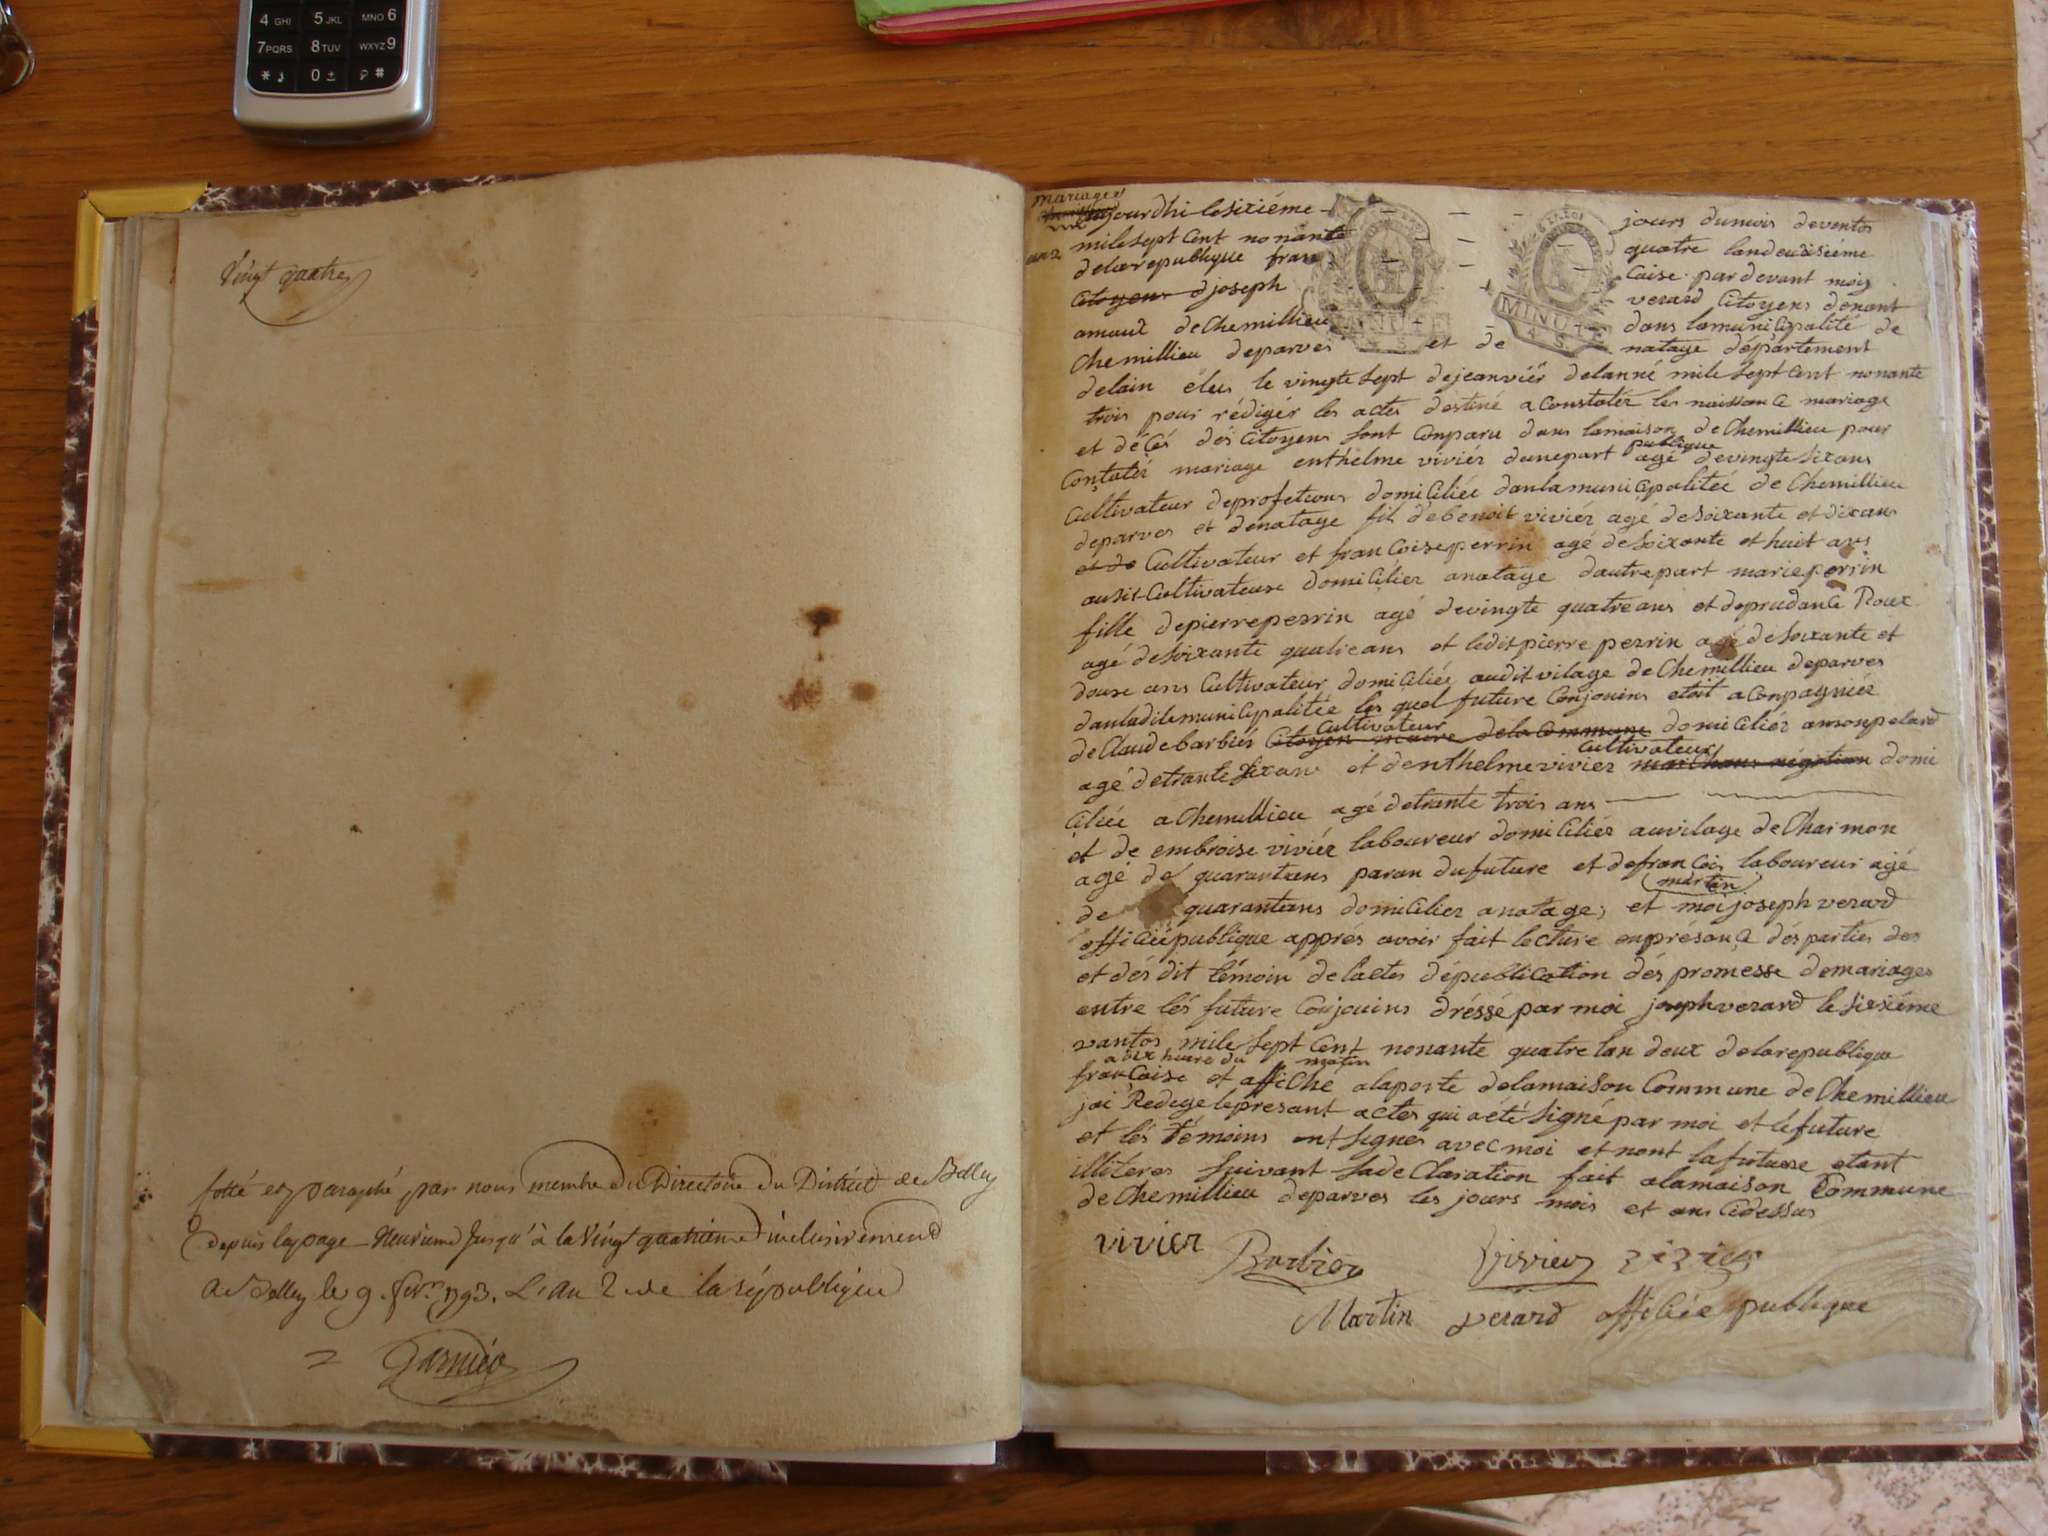 4 GHI 5 JKL MNO 6
7PQRS 8TUV WXYZ9
* 0 ± #
vingt quatre
Cotté et paraphé par nous membre du Directoire du District de Belley
depuis la page neuvieme jusqu'à la vingt quatrieme inclusivement
A Belley le 9. fevr. 1793. L'an 2 de la république
Garnier
mariages
an 2
aujourdhi le sixiéme jours dumois deventos
mile sept Cent nonante quatre landeuxiséme
delarepublique francaise par devant mois
Citoyens djoseph verard Citoyens denant
amaux de Chemillieu dans lamunicipalité de
Chemillieu deparves et de natage département
delain éleu le vingte sept dejeanviér delanné mile sept Cent nonante
trois pour rédigér les actes destiné a Constatér les naissance mariage
et décés dés Citoyens sont Conparu dans lamaison publique de Chemillieu pour
Constatér mariage enthelme viviér dunepart agé devingte six ans
Cultivateur deprofetions domiciliée danlamunicipalitée de Chemillieu
deparves et denatage fils debenoit viviér agé desoixante et dixans
et de Cultivateur et francoiseperrin agé desoixante et huit ans
ausit Cultivateure domiciliér anatage dautrepart marieperrin
fille depierreperrin agé devingte quatreans et deprudance Roux
agé desoixante quatreans et ledit pierre perrin agé desoixante et
douse ans Cultivateur domiciliée audit vilage de Chemillieu deparves
danladitemunicipalitée les quel future Conjouins etoit aConpagniér
de Claude barbiér Citoyen maire dela Commune Cultivateur domiciliér amonpelard
agé detrante sixans et denthelmevivier marchans négotian Cultivateur domi
ciliée a Chemillieu agé detrante trois ans
et de embroise viviér laboureur domiciliér auvilage de Charmon
agé de quarantans paran dufuture et defrancois martin laboureur agé
de quarantans domiciliér anatage, et moi joseph verard
officiépublique apprés avoir fait lecture enpresance dés parties des
et dés dit témoin de lactes dépublication dés promesse demariages
entre lés future Conjouins dréssé par moi joseph verard le sixiéme
vantos mile sept Cent nonante quatre lan deux delarepublique
francaise a dix heure du matin et affiché alaporte delamaison Commune de Chemillieu
jai Redege lepresant actes qui a été signé par moi et lé future
et lés témoins ont signés avec moi et nont lafuture etant
illitéres suivant sade Claration fait alamaison Commune
de Chemillieu deparves les jours mois et ans Cidessus
vivier Barbier vivier vivier
Martin verard officiée publique
MINUTE